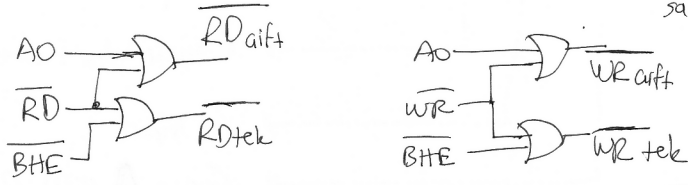 sa
A0
RD
BHE
RDçift
RDtek
A0
WR
BHE
WR çift
WR tek